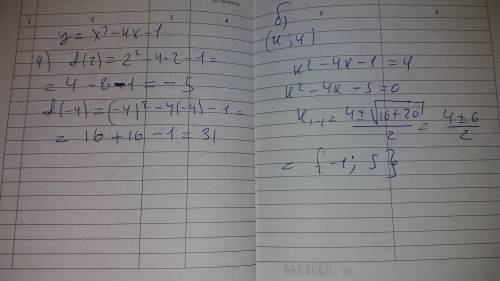 1 2 3 4
y = x² - 4x - 1
a) f(2) = 2² - 4·2 - 1 =
= 4 - 8 - 1 = -5
f(-4) = (-4)² - 4(-4) - 1 =
= 16 + 16 - 1 = 31
5 6
б)
(x; 4)
x² - 4x - 1 = 4
x² - 4x - 5 = 0
x₁₋₂ = (4 ± √(16 + 20))/2 = (4 ± 6)/2
= {-1; 5}